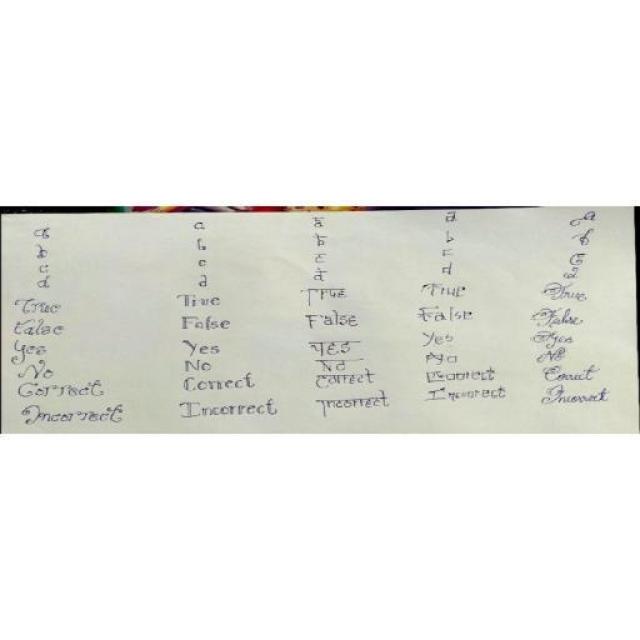 a a a a a
b b b b b
c c c c c
d d d d d
True True True True True
False False False False False
Yes Yes YES Yes Yes
No No No No No
Correct Correct Correct Correct
Incorrect Incorrect Incorrect Incorrect Incorrect